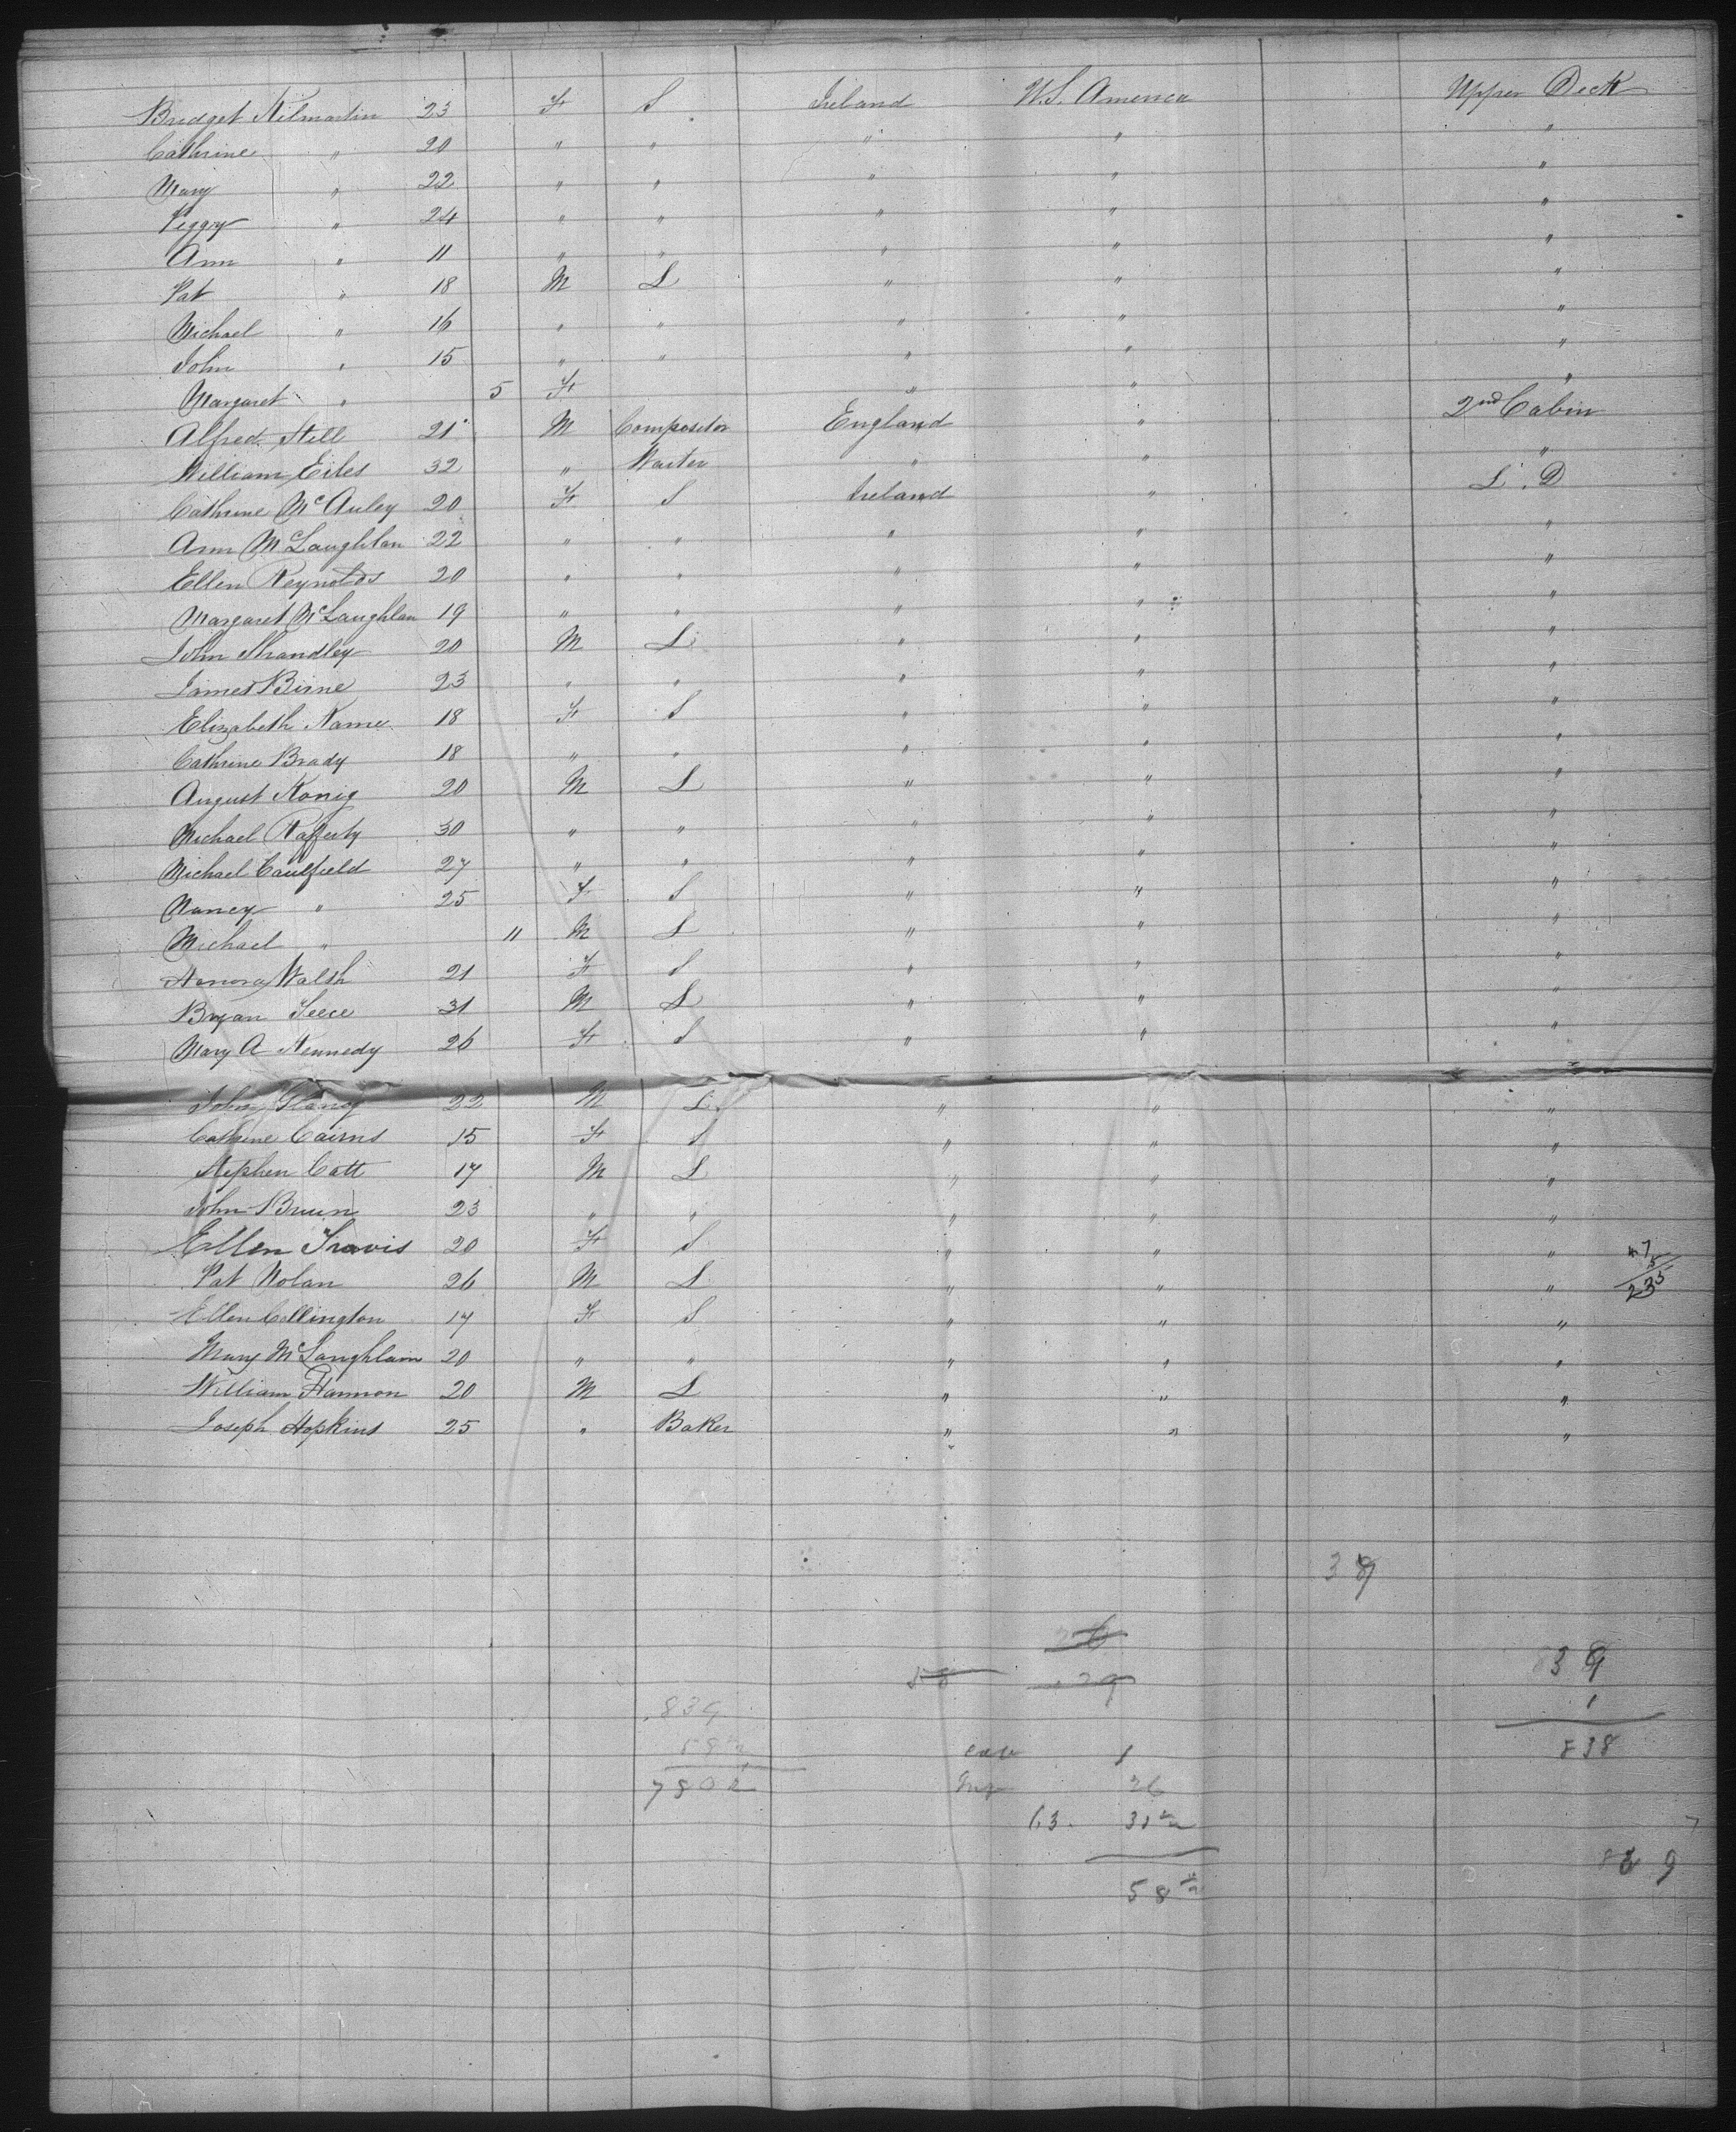 Bridget Kilmartin 23 F S Ireland U.S. America Upper Deck
Cathrine " 20 " " " " "
Mary " 22 " " " " "
Peggy " 24 " " " " "
Ann " 11 " " " " "
Pat " 18 M L " " "
Michael " 16 " " " " "
John " 15 " " " " "
Margaret " 5 F " " "
Alfred Still 21 M Compositor England " 2nd Cabin
William Eiles 32 " Waiter " " "
Cathrine McAuley 20 F S Ireland " L. D
Ann McLaughlan 22 " " " " "
Ellen Reynolds 20 " " " " "
Margaret McLaughlan 19 " " " " "
John Shandley 20 M L " " "
James Birne 23 " " " " "
Elizabeth 18 F S " " "
Cathrine Brady 18 " " " " "
August Konig 20 M L " " "
Michael Rafferty 30 " " " " "
Michael Caulfield 27 " " " " "
Nancy " 25 F S " " "
Michael " 11 M L " " "
Honora Walsh 21 F S " " "
Bryan 31 M L " " "
Mary A Kennedy 26 F S " " "
John 22 M L " " "
Cathrine Cairns 15 F S " " "
Stephen Catt 17 M L " " "
John Bruin 23 " " " " "
Ellen Travis 20 F S " " "
47
5
235
Pat Nolan 26 M L " " "
Ellen Collington 17 F S " " "
Mary McLaughlam 20 " " " " "
William Hannon 20 M L " " "
Joseph Hopkins 25 " Baker " " "
29
839
1
838
1
26
63.